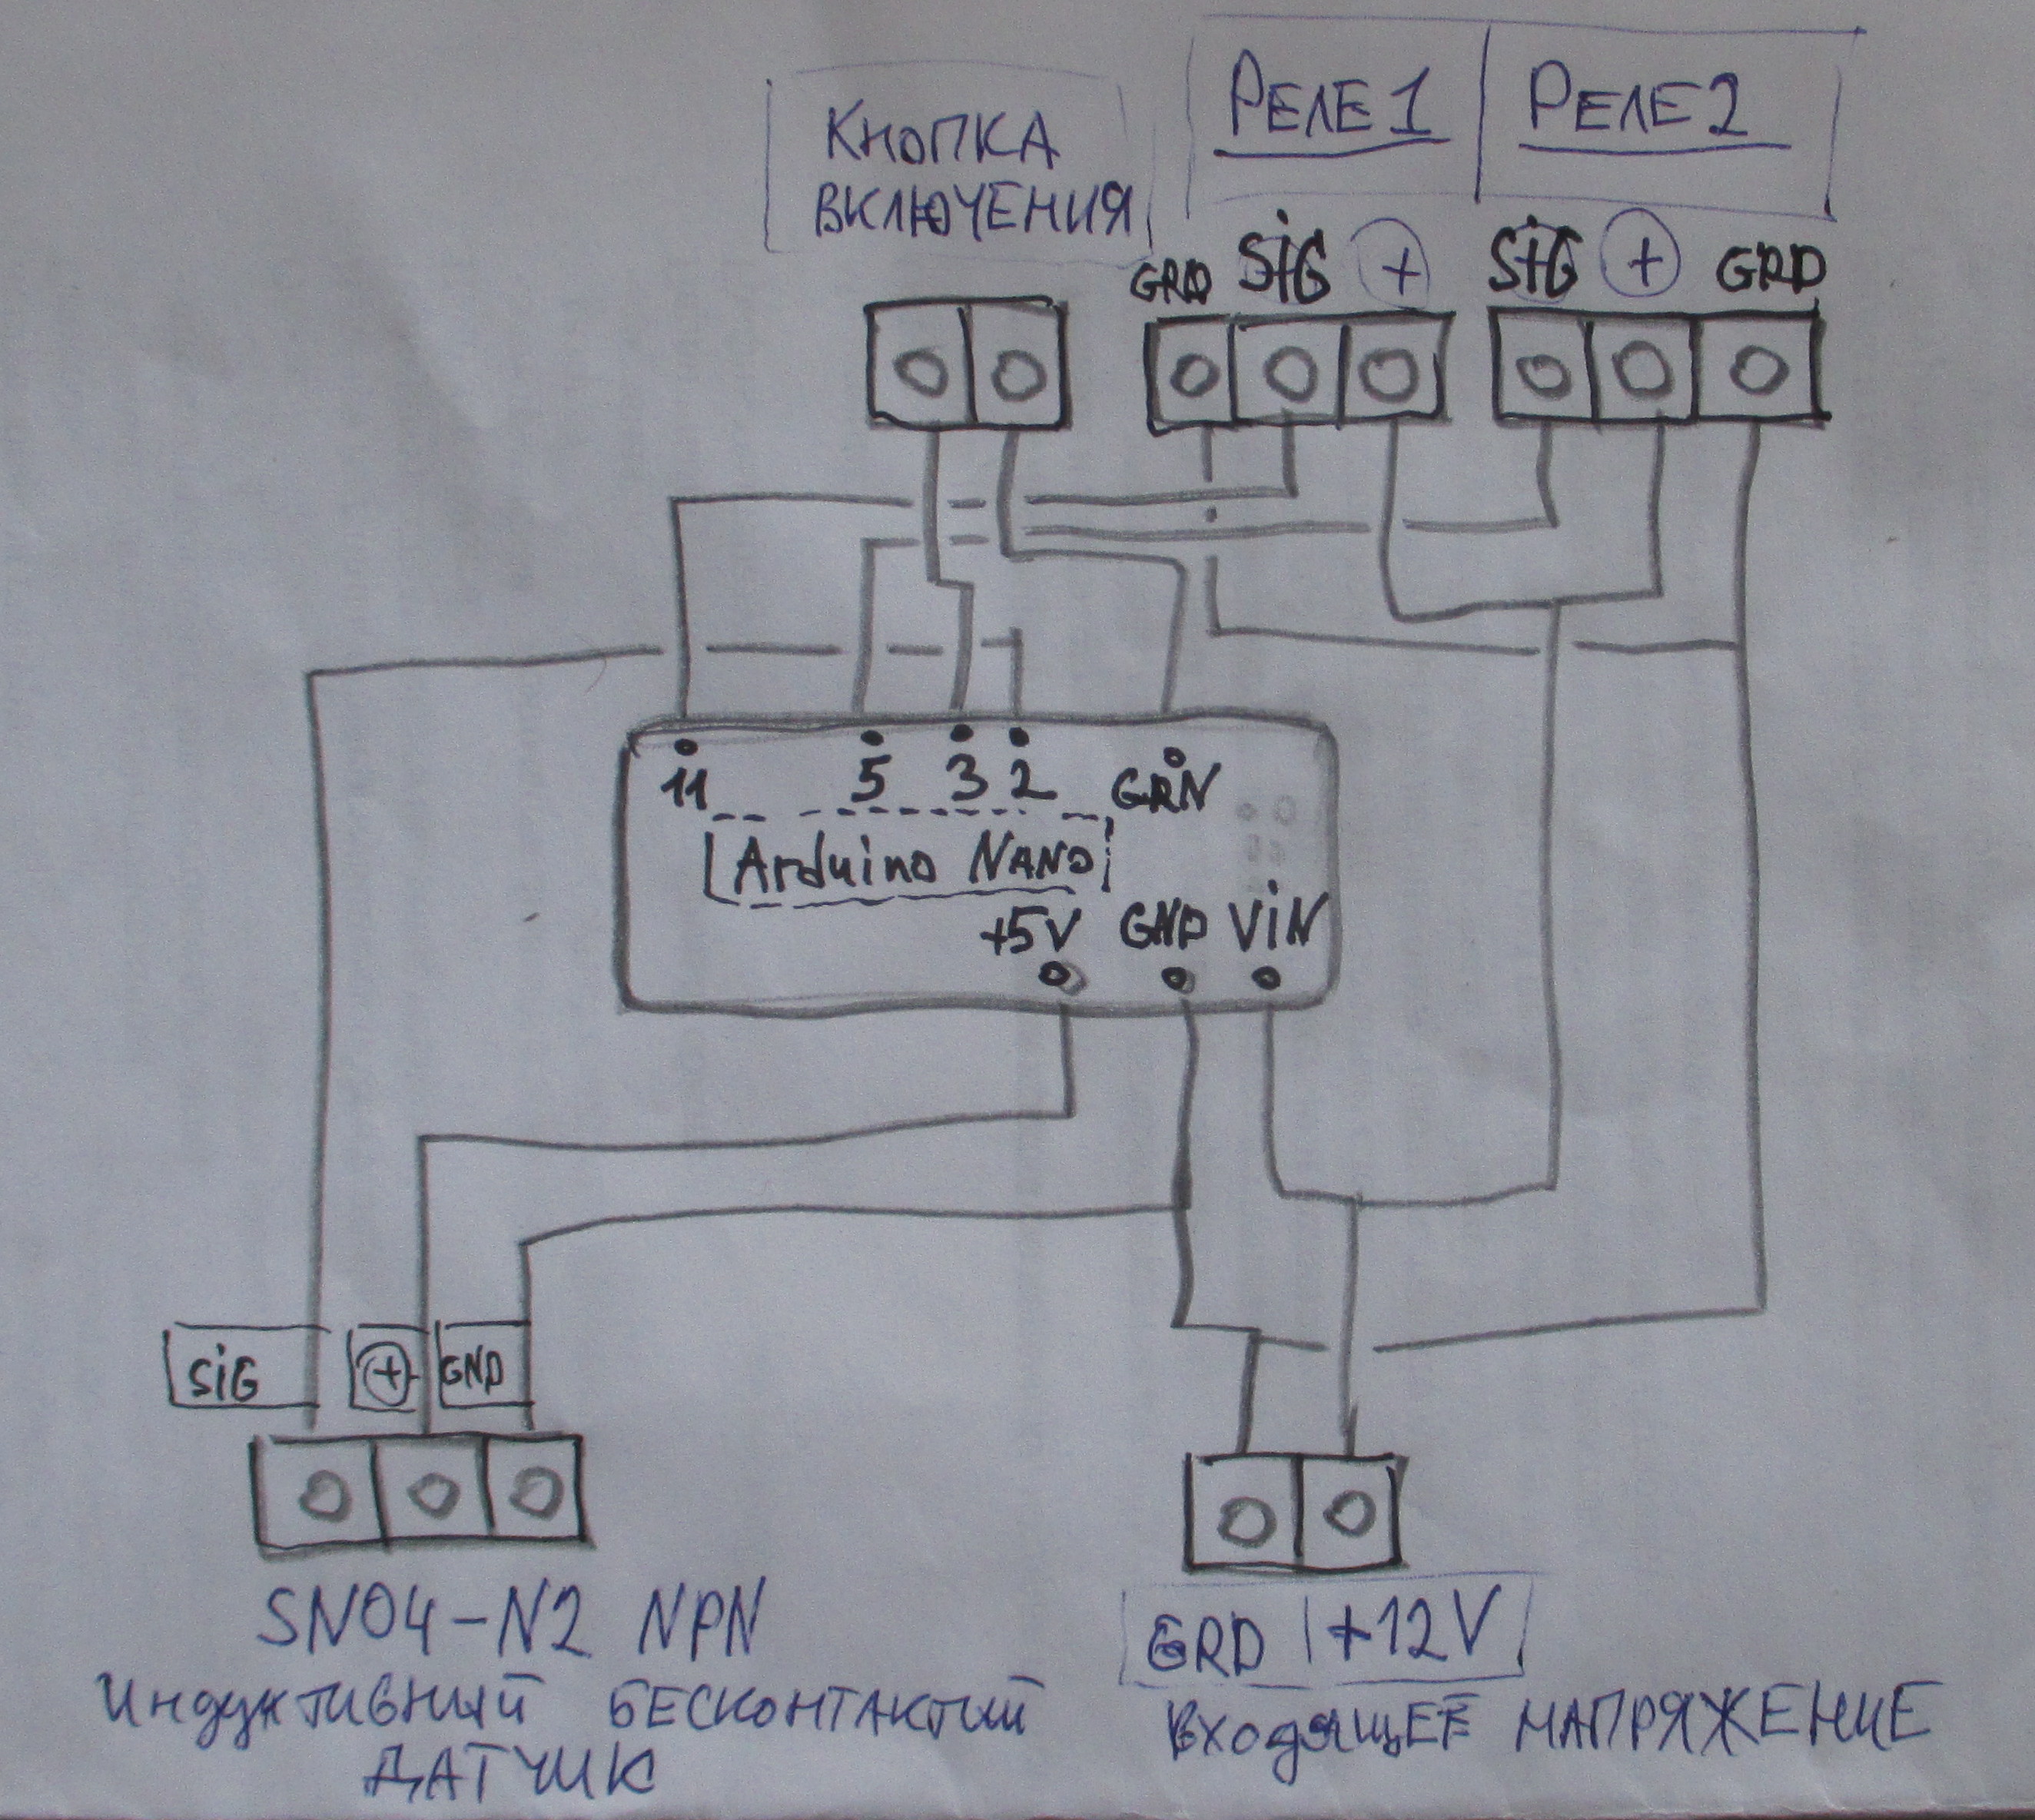 КНОПКА
ВКЛЮЧЕНИЯ
РЕЛЕ 1
РЕЛЕ 2
GRD SiG +
SiG + GRD
11 5 3 2 GRN
Arduino NANO
+5V GND ViN
SiG + GND
SN04-N2 NPN
ИНДУКТИВНЫЙ БЕСКОНТАКТИЙ
ДАТЧИК
GRD | +12V
ВХОДЯЩЕЕ НАПРЯЖЕНИЕ